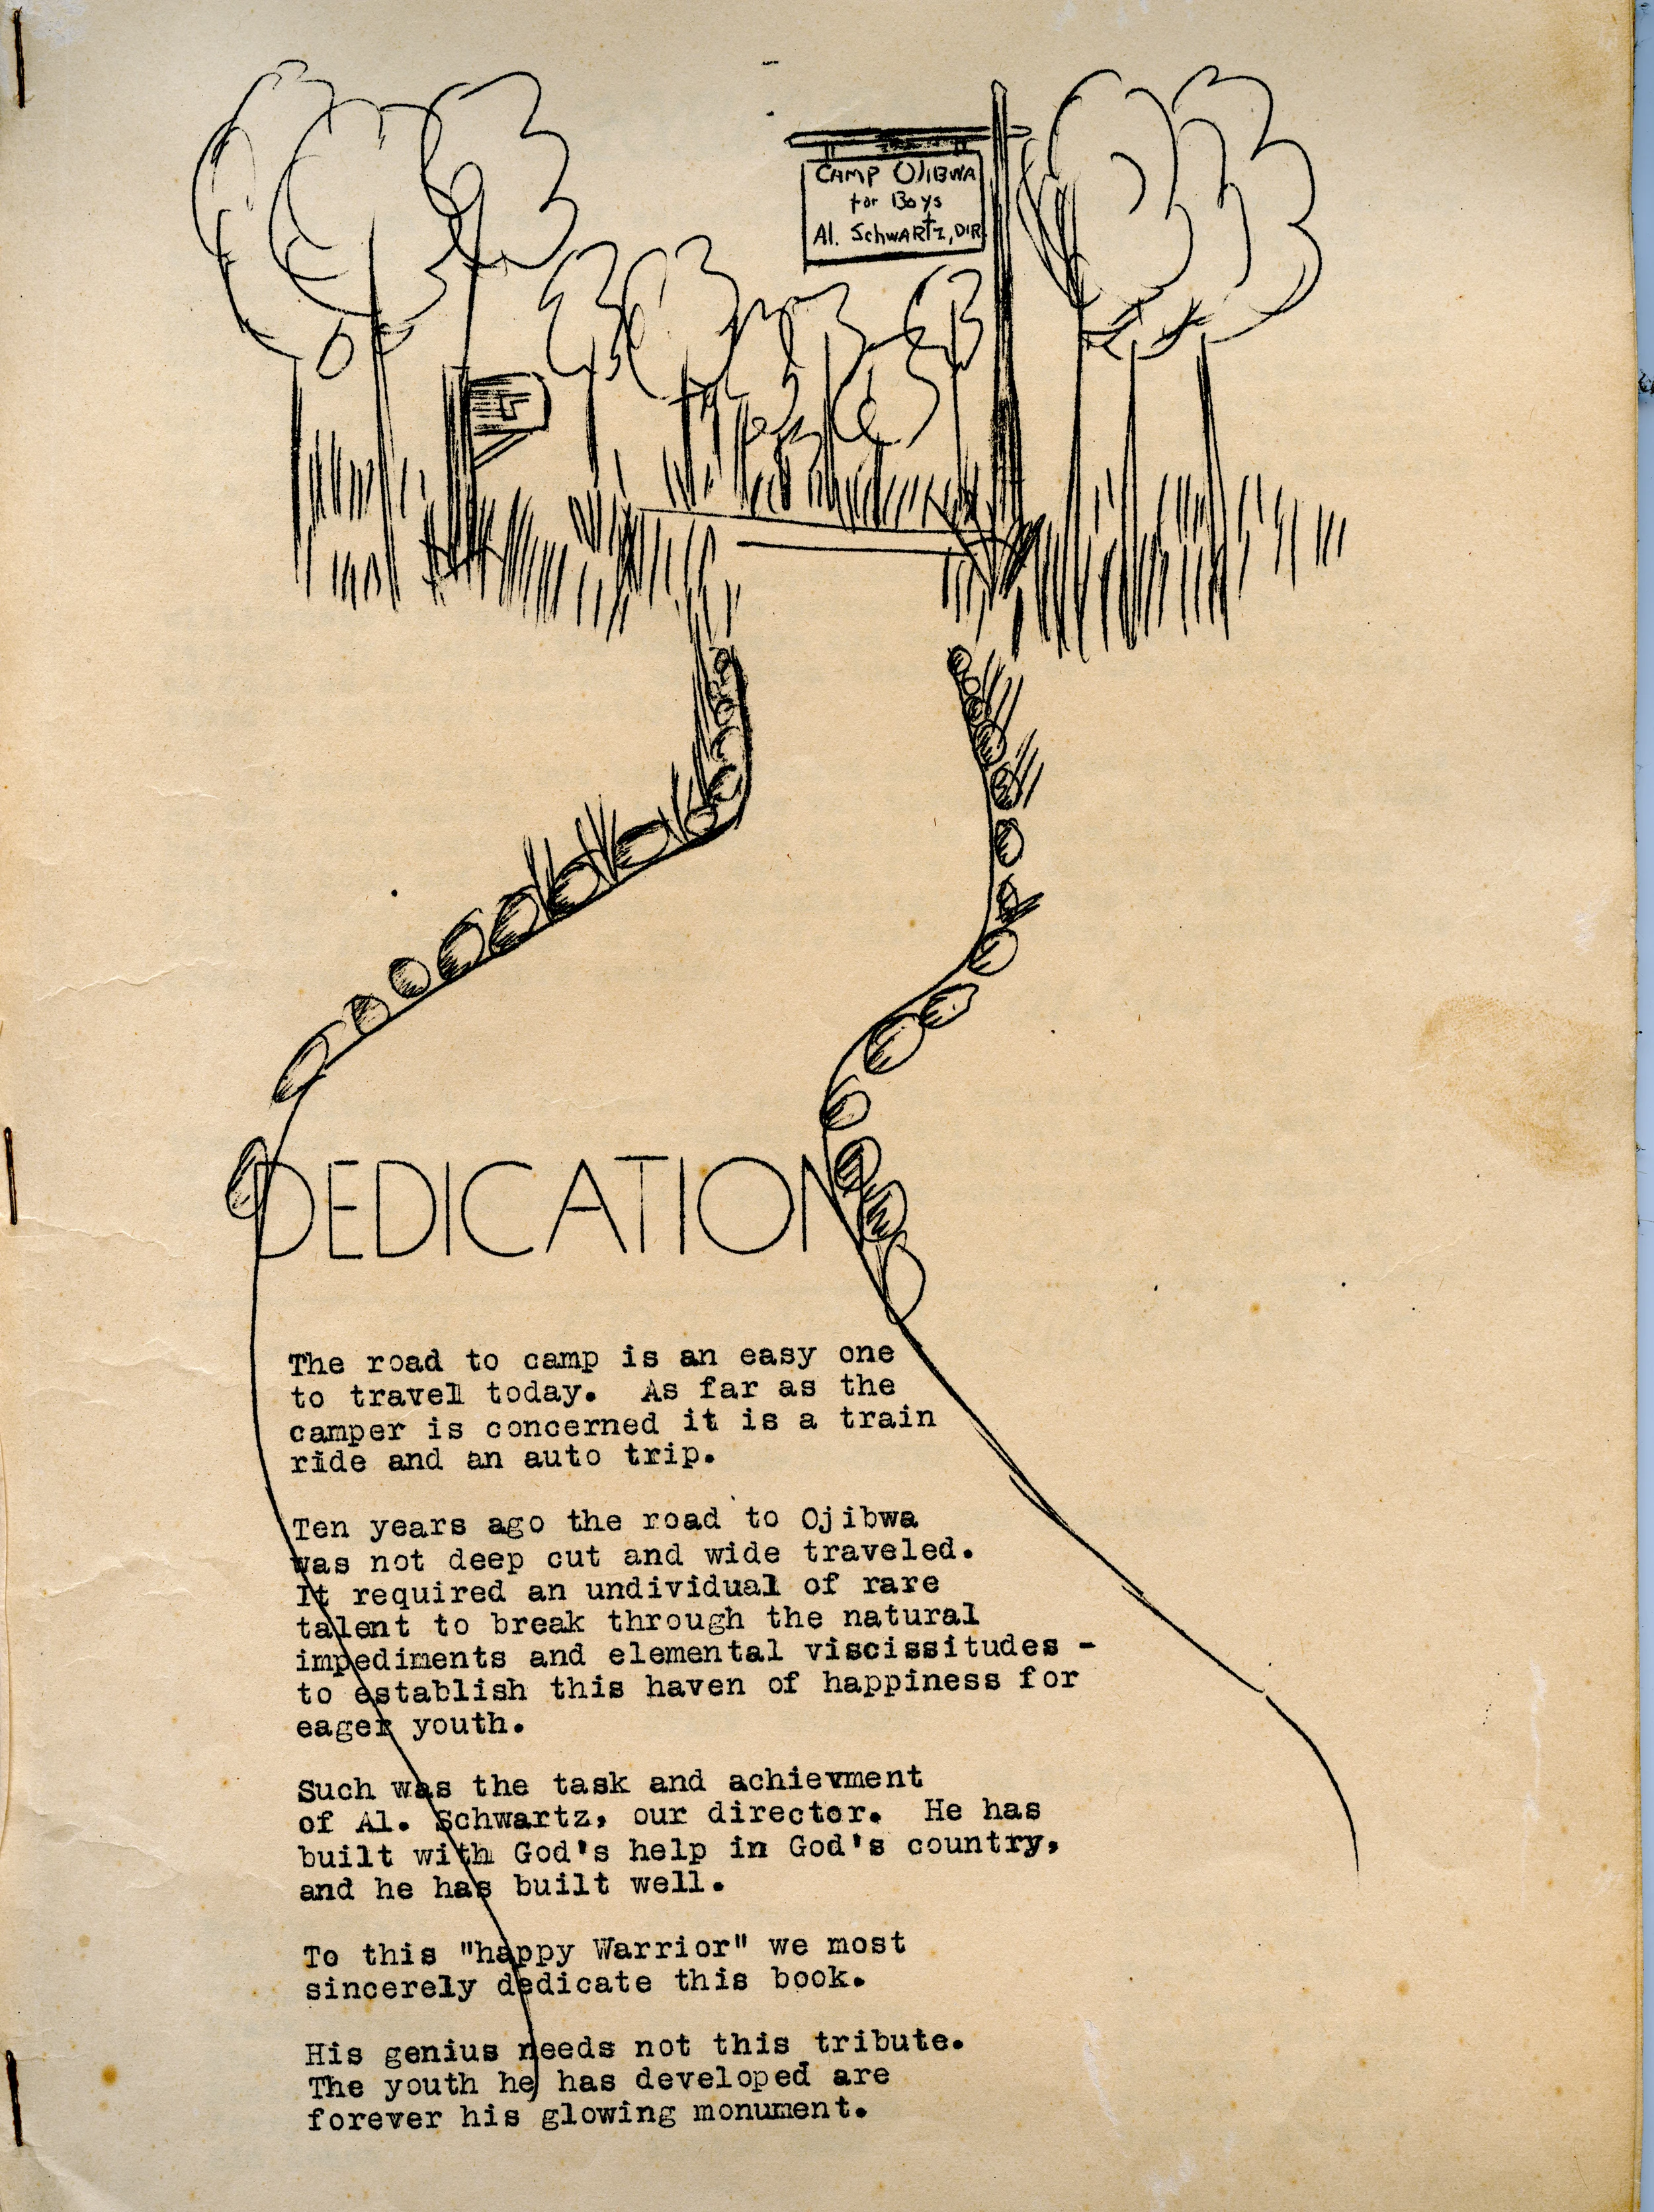 CAMP OJIBWA
for Boys
Al. Schwartz, DIR.
DEDICATION
The road to camp is an easy one
to travel today.  As far as the
camper is concerned it is a train
ride and an auto trip.
Ten years ago the road to Ojibwa
was not deep cut and wide traveled.
It required an undividual of rare
talent to break through the natural
impediments and elemental viscissitudes -
to establish this haven of happiness for
eager youth.
Such was the task and achievment
of Al. Schwartz, our director.  He has
built with God's help in God's country,
and he has built well.
To this "happy Warrior" we most
sincerely dedicate this book.
His genius needs not this tribute.
The youth he has developed are
forever his glowing monument.